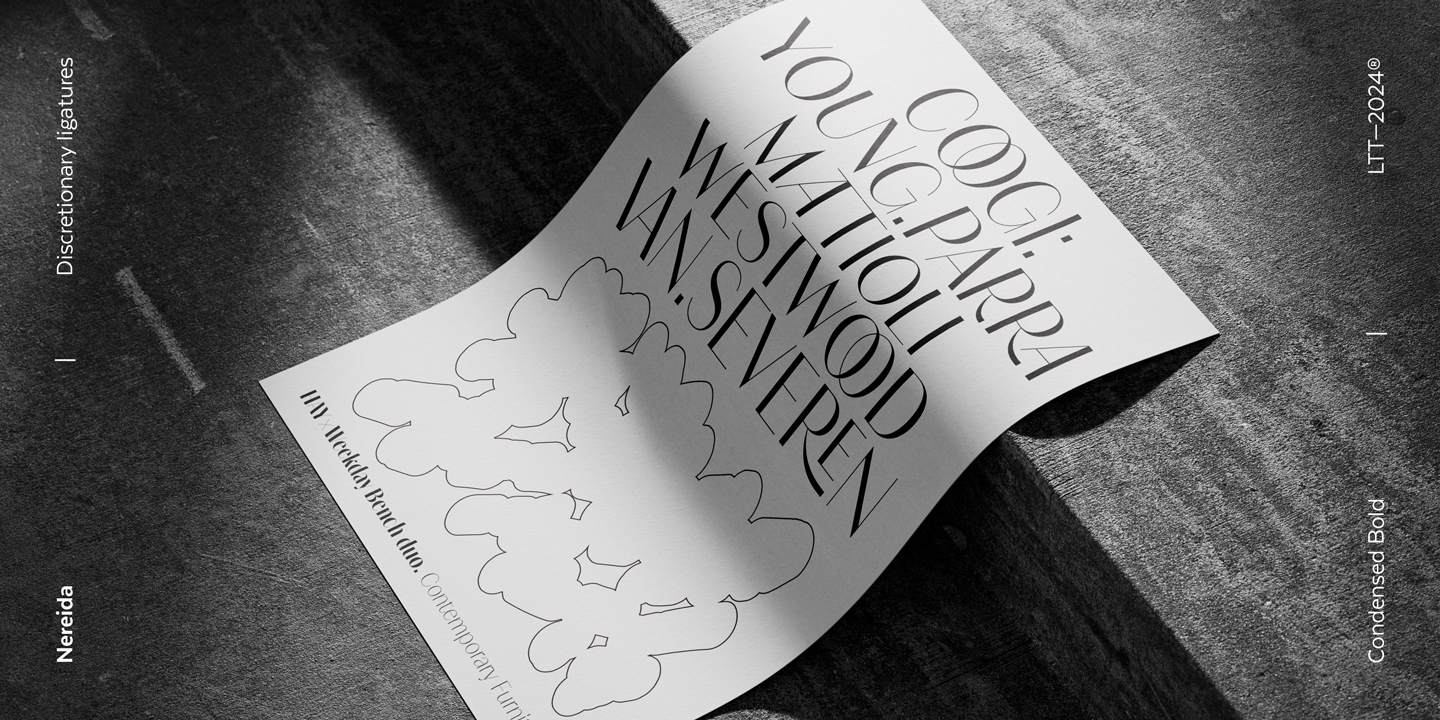 Discretionary ligatures
|
Nereida
COOGI.
YOUNG.PARRA
MATTIOLI
WESTWOOD
VAN.SEVEREN
HAY x Weekday Bench duo. Contemporary
LTT—2024®
|
Condensed Bold